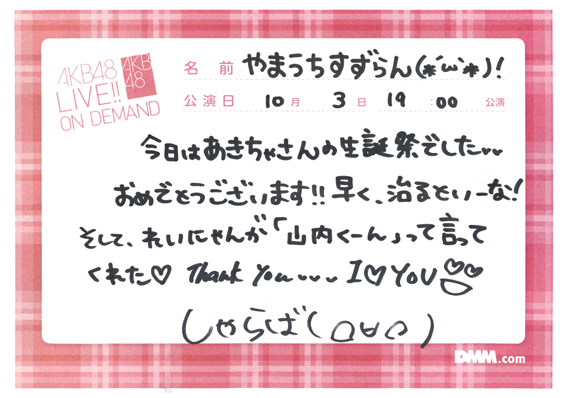 AKB48
LIVE!!
ON DEMAND
AKB
48
名前 やまうちすずらん(*´ω`*)!
公演日 10月 3日 19:00 公演
今日はあきちゃさんの生誕祭でした〰
おめでとうございます!!早く、治るといーな!
そして、れいにゃんが「山内くーん」って言って
くれた♡ Thank you〰 I♡YOU
しゃらば(
DMM.com